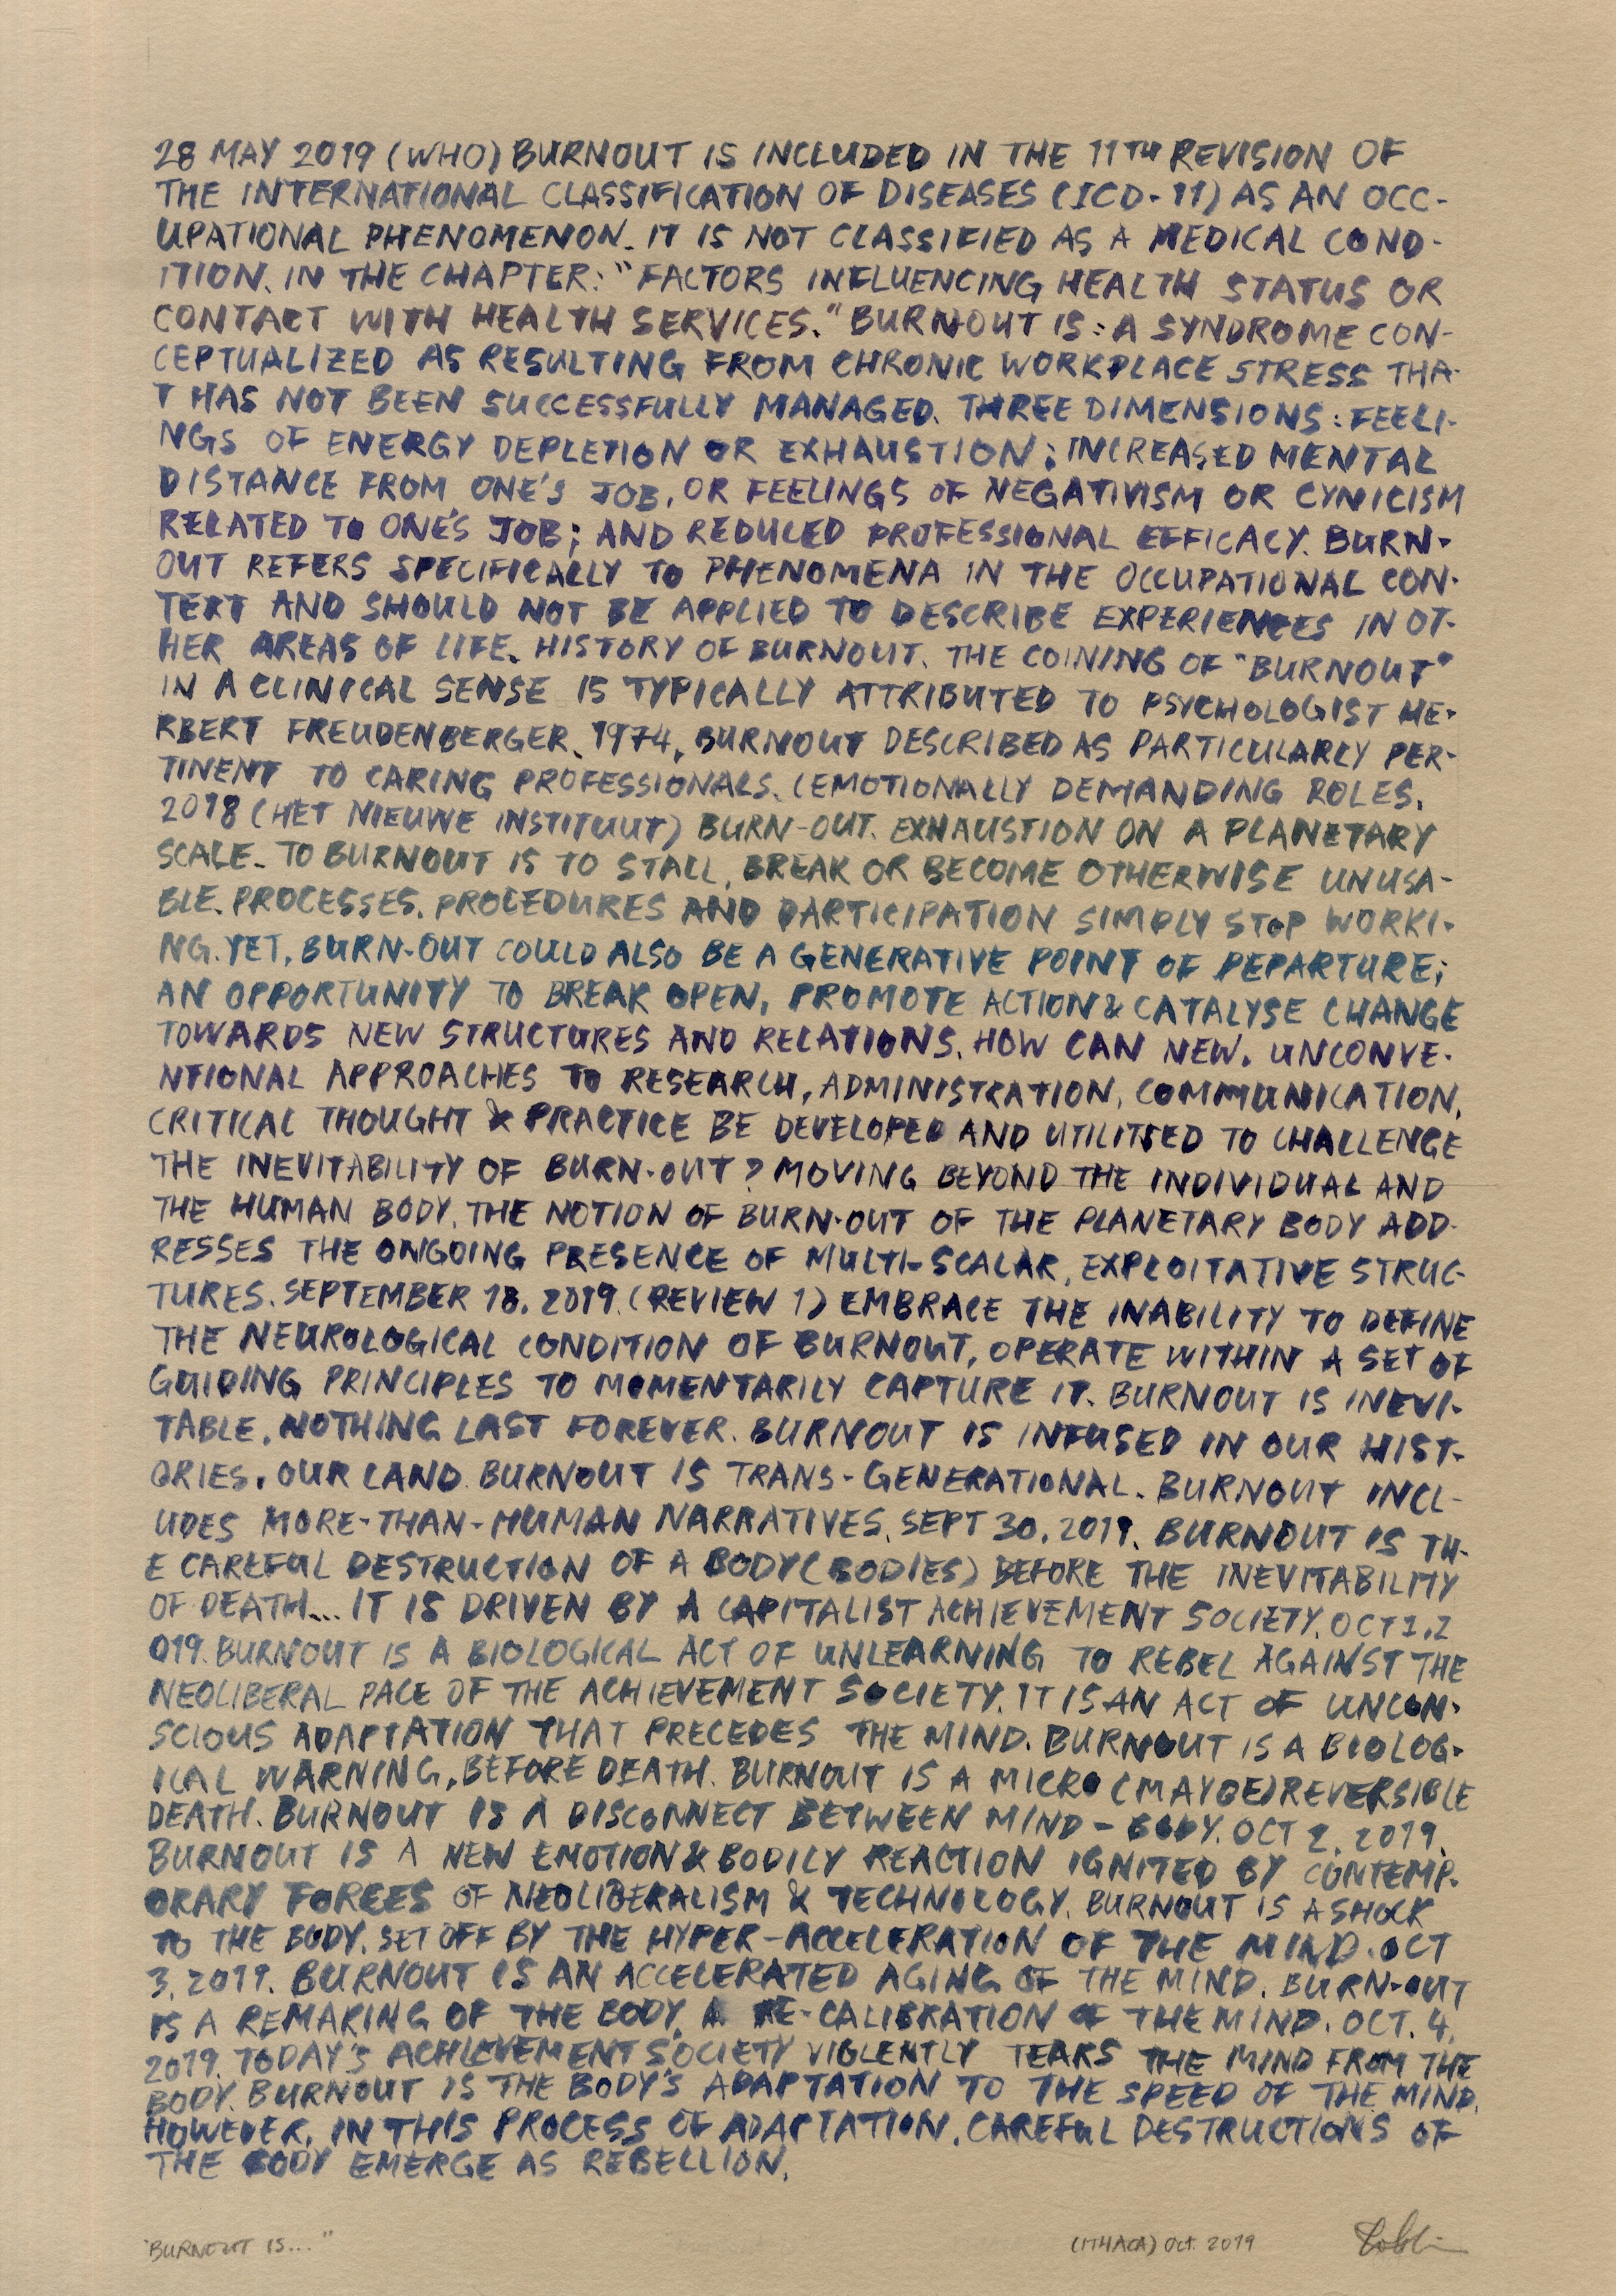 28 MAY 2019 (WHO) BURNOUT IS INCLUDED IN THE 11TH REVISION OF
THE INTERNATIONAL CLASSIFICATION OF DISEASES (ICD-11) AS AN OCC-
UPATIONAL PHENOMENON. IT IS NOT CLASSIFIED AS A MEDICAL COND-
ITION. IN THE CHAPTER: "FACTORS INFLUENCING HEALTH STATUS OR
CONTACT WITH HEALTH SERVICES." BURNOUT IS: A SYNDROME CON-
CEPTUALIZED AS RESULTING FROM CHRONIC WORKPLACE STRESS THA-
T HAS NOT BEEN SUCCESSFULLY MANAGED. THREE DIMENSIONS: FEELI-
NGS OF ENERGY DEPLETION OR EXHAUSTION; INCREASED MENTAL
DISTANCE FROM ONE'S JOB, OR FEELINGS OF NEGATIVISM OR CYNICISM
RELATED TO ONE'S JOB; AND REDUCED PROFESSIONAL EFFICACY. BURN-
OUT REFERS SPECIFICALLY TO PHENOMENA IN THE OCCUPATIONAL CON-
TEXT AND SHOULD NOT BE APPLIED TO DESCRIBE EXPERIENCES IN OT-
HER AREAS OF LIFE. HISTORY OF BURNOUT. THE COINING OF "BURNOUT"
IN A CLINICAL SENSE IS TYPICALLY ATTRIBUTED TO PSYCHOLOGIST HE-
RBERT FREUDENBERGER. 1974, BURNOUT DESCRIBED AS PARTICULARLY PER-
TINENT TO CARING PROFESSIONALS. (EMOTIONALLY DEMANDING ROLES.
2018 (HET NIEUWE INSTITUUT) BURN-OUT. EXHAUSTION ON A PLANETARY
SCALE. TO BURNOUT IS TO STALL, BREAK OR BECOME OTHERWISE UNUSA-
BLE. PROCESSES, PROCEDURES AND PARTICIPATION SIMPLY STOP WORKI-
NG. YET, BURN-OUT COULD ALSO BE A GENERATIVE POINT OF DEPARTURE;
AN OPPORTUNITY TO BREAK OPEN, PROMOTE ACTION & CATALYSE CHANGE
TOWARDS NEW STRUCTURES AND RELATIONS. HOW CAN NEW, UNCONVE-
NTIONAL APPROACHES TO RESEARCH, ADMINISTRATION, COMMUNICATION,
CRITICAL THOUGHT & PRACTICE BE DEVELOPED AND UTILITSED TO CHALLENGE
THE INEVITABILITY OF BURN-OUT? MOVING BEYOND THE INDIVIDUAL AND
THE HUMAN BODY. THE NOTION OF BURN-OUT OF THE PLANETARY BODY ADD-
RESSES THE ONGOING PRESENCE OF MULTI-SCALAR, EXPLOITATIVE STRUC-
TURES. SEPTEMBER 18, 2019. (REVIEW 1) EMBRACE THE INABILITY TO DEFINE
THE NEUROLOGICAL CONDITION OF BURNOUT, OPERATE WITHIN A SET OF
GUIDING PRINCIPLES TO MOMENTARILY CAPTURE IT. BURNOUT IS INEVI-
TABLE. NOTHING LAST FOREVER. BURNOUT IS INFUSED IN OUR HIST-
ORIES, OUR LAND. BURNOUT IS TRANS-GENERATIONAL. BURNOUT INCL-
UDES MORE-THAN-HUMAN NARRATIVES. SEPT 30, 2019. BURNOUT IS TH-
E CAREFUL DESTRUCTION OF A BODY (BODIES) BEFORE THE INEVITABILITY
OF DEATH... IT IS DRIVEN BY A CAPITALIST ACHIEVEMENT SOCIETY. OCT 1, 2
019. BURNOUT IS A BIOLOGICAL ACT OF UNLEARNING TO REBEL AGAINST THE
NEOLIBERAL PACE OF THE ACHIEVEMENT SOCIETY. IT IS AN ACT OF UNCON-
SCIOUS ADAPTATION THAT PRECEDES THE MIND. BURNOUT IS A BIOLOG-
ICAL WARNING, BEFORE DEATH. BURNOUT IS A MICRO (MAYBE) REVERSIBLE
DEATH. BURNOUT IS A DISCONNECT BETWEEN MIND - BODY. OCT 2, 2019.
BURNOUT IS A NEW EMOTION & BODILY REACTION IGNITED BY CONTEMP-
ORARY FORCES OF NEOLIBERALISM & TECHNOLOGY. BURNOUT IS A SHOCK
TO THE BODY, SET OFF BY THE HYPER-ACCELERATION OF THE MIND. OCT
3, 2019. BURNOUT IS AN ACCELERATED AGING OF THE MIND. BURN-OUT
IS A REMAKING OF THE BODY, A RE-CALIBRATION OF THE MIND. OCT. 4,
2019. TODAY'S ACHIEVEMENT SOCIETY VIOLENTLY TEARS THE MIND FROM THE
BODY. BURNOUT IS THE BODY'S ADAPTATION TO THE SPEED OF THE MIND.
HOWEVER, IN THIS PROCESS OF ADAPTATION, CAREFUL DESTRUCTIONS OF
THE BODY EMERGE AS REBELLION.
"BURNOUT IS..." (ITHACA) OCT. 2019